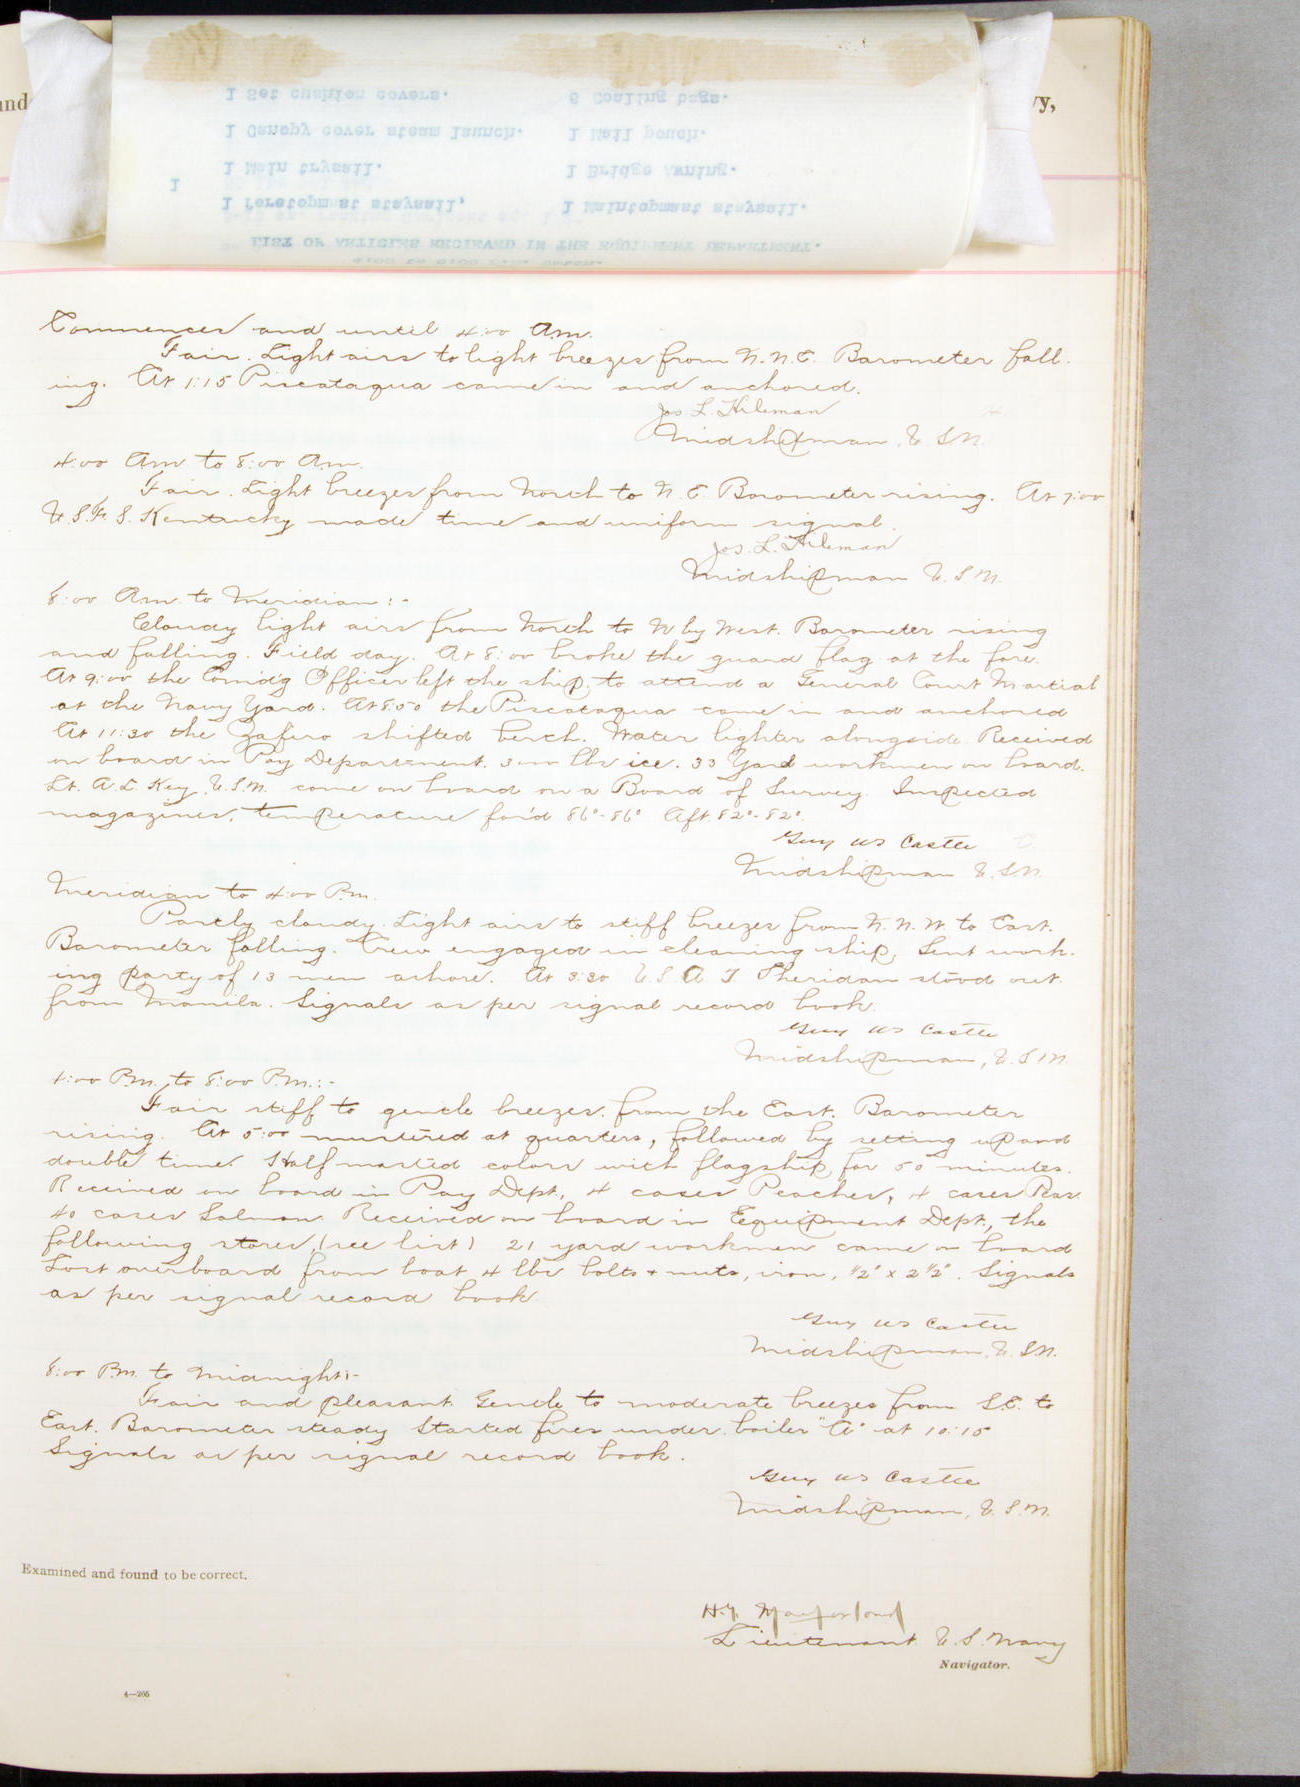 and
vy,
1 Set cushion covers. 6 Coaling bags.
1 Canopy cover steam launch. 1 Mail pouch.
1 Main trysail. 1 Bridge awning.
1
1 Foretopmast staysail, 1 Maintopmast staysail.
LIST OF ARTICLES RECEIVED IN THE EQUIPMENT DEPARTMENT.
Commences and until 4:00 A.m.
Fair. Light airs to light breezes from N.N.E. Barometer fall-
ing. At 1:15 Piscataqua came in and anchored.
Jos L. Hileman
Midshipman U.S.N.
4:00 Am to 8:00 A.m.
Fair. Light breezes from North to N.E. Barometer rising. At 7:00
U.S.F.S. Kentucky made time and uniform signal.
Jos. L. Hileman
Midshipman U.S.N.
8:00 A.m. to Meridian:-
Cloudy light airs from North to N by West. Barometer rising
and falling. Field day. At 8:00 broke the guard flag at the fore.
At 9:00 the Comd'g Officer left the ship to attend a General Court Martial
at the Navy Yard. At 8:50 the Piscataqua came in and anchored
At 11:30 the Zafiro shifted berth. Water lighter alongside. Received
on board in Pay Department. 3000 lbs ice. 33 Yard workmen on board.
Lt. A.L. Key, U.S.N. came on board on a Board of Survey. Inspected
magazines, temperature for'd 86°-86° Aft 82°-82°.
Guy W S Castle
Midshipman U.S.N.
Meridian to 4:00 P.m.
Partly cloudy. Light airs to stiff breezes from N.N.W. to East.
Barometer falling. Crew engaged in cleaning ship, Sent work-
ing party of 13 men ashore. At 3:30 U.S.A.T. Sheridan stood out
from Manila. Signals as per signal record book.
Guy W S Castle
Midshipman, U.S.N.
4:00 P.M. to 8:00 P.M.:-
Fair stiff to gentle breezes from the East. Barometer
rising. At 5:00 mustered at quarters, followed by setting up and
double time. Half masted colors with flagship for 50 minutes.
Received on board in Pay Dept., 4 cases Peaches, 4 cases Pears
40 cases Salmon. Received on board in Equipment Dept., the
following stores (see list) 21 yard workmen came on board
Lost overboard from boat 4 lbs bolts & nuts, iron, 1/2" x 2 1/2". Signals
as per signal record book.
Guy W S Castle
Midshipman, U.S.N.
8:00 P.M. to Midnight:-
Fair and pleasant. Gentle to moderate breezes from S.E. to
East. Barometer steady Started fires under boiler "A" at 10:15
Signals as per signal record book.
Guy W S Castle
Midshipman, U.S.N.
Examined and found to be correct.
Lieutenant U.S. Navy
Navigator.
4—205